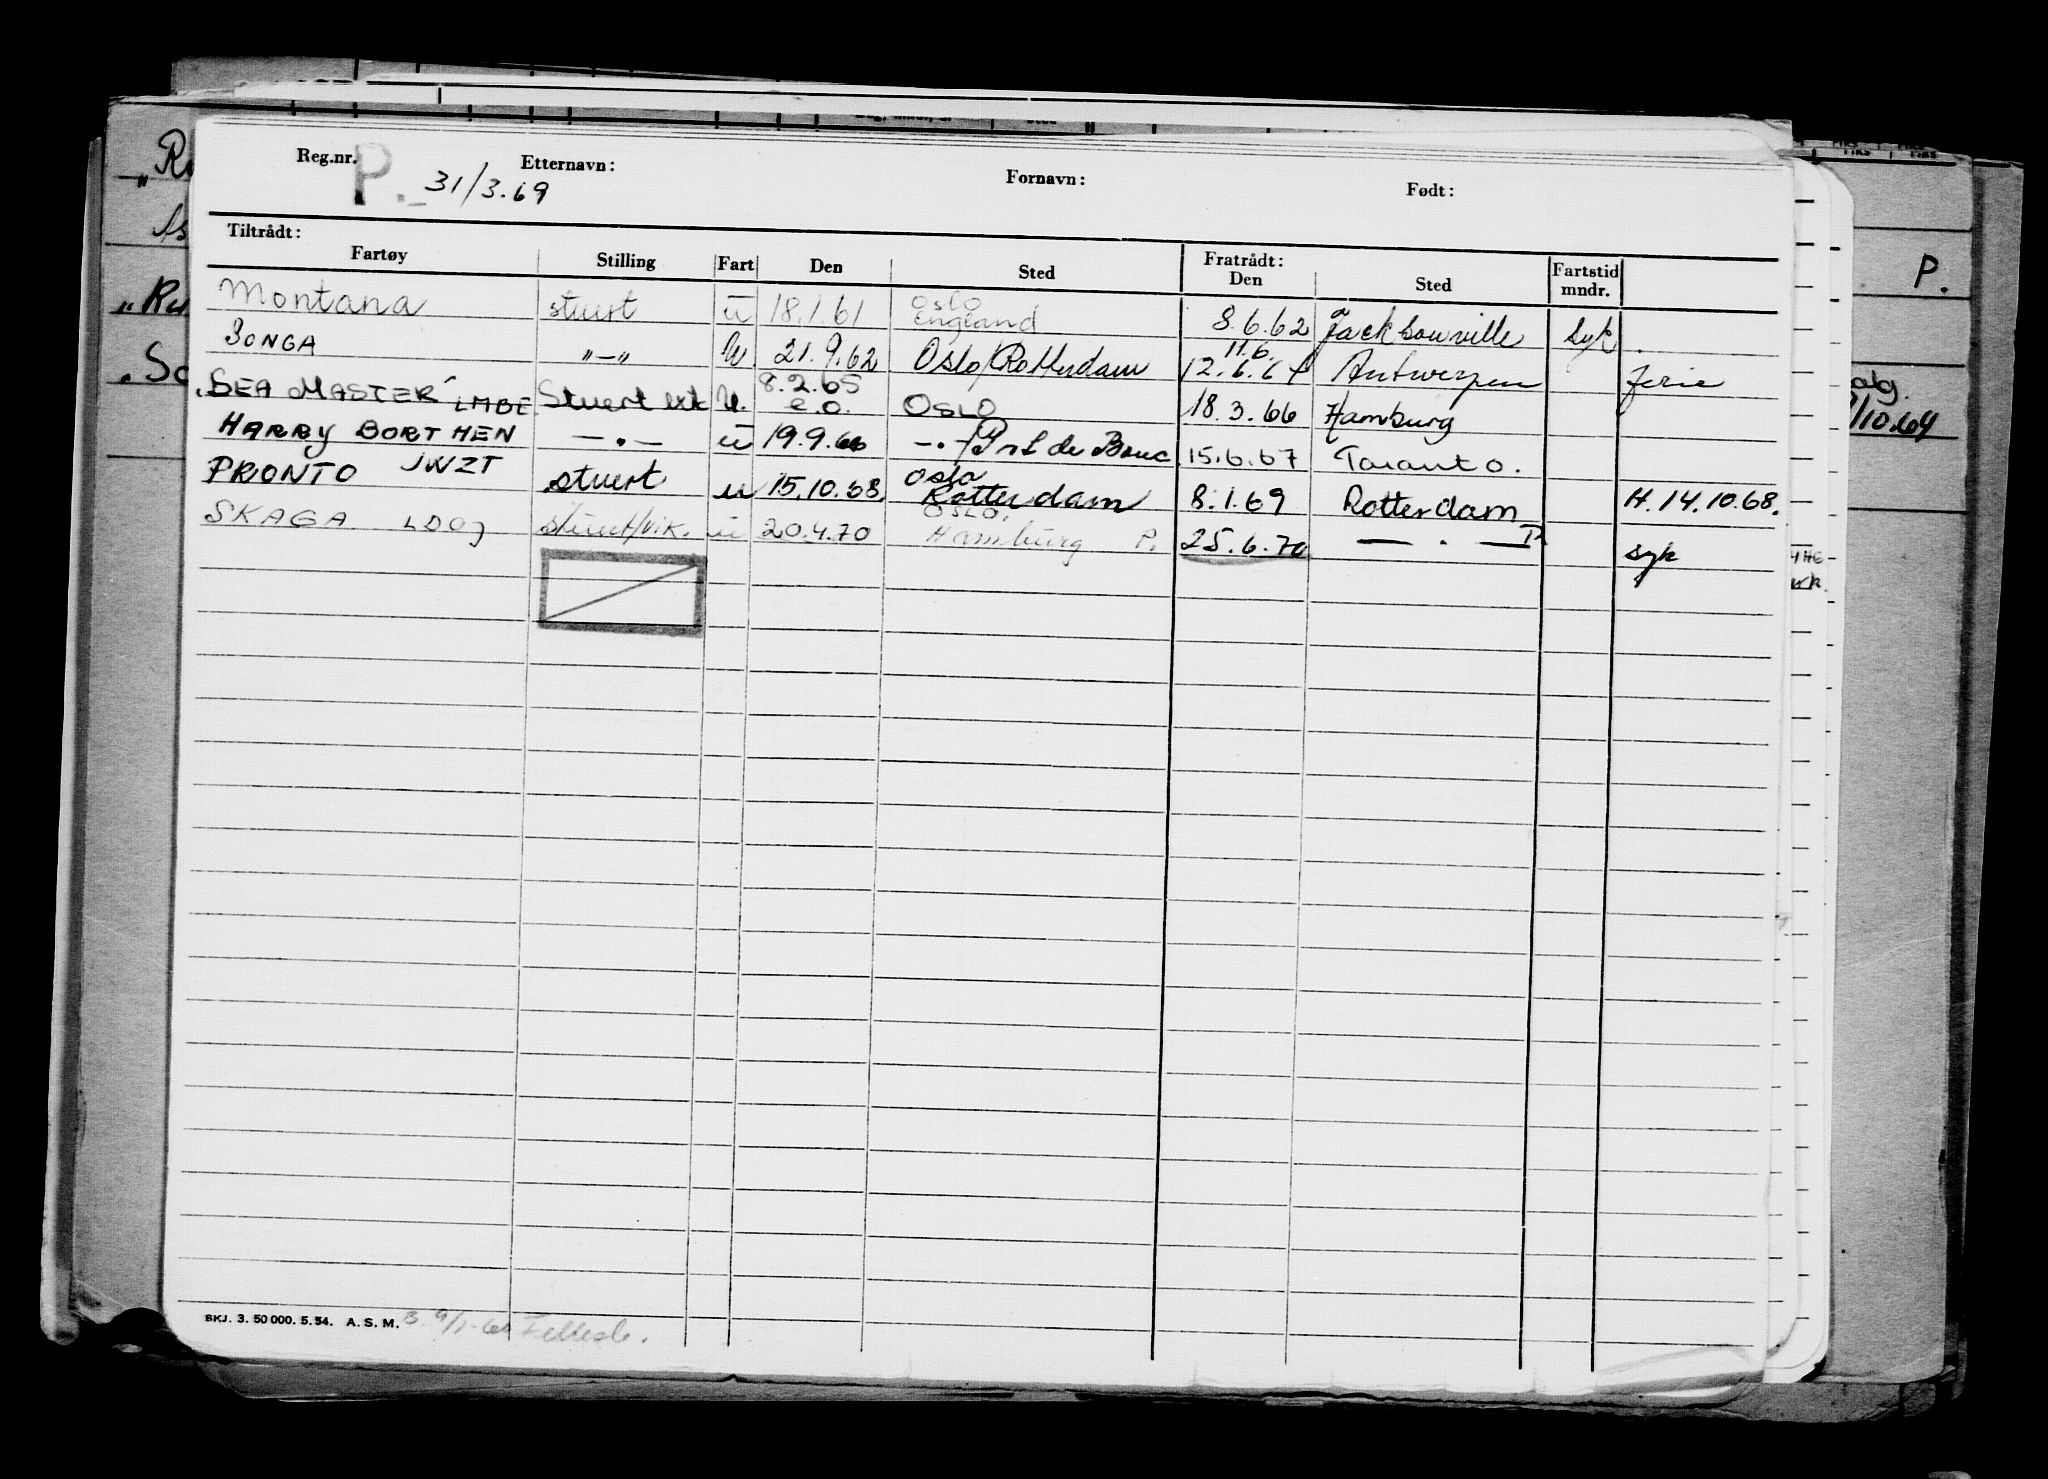 Reg.nr. P. 31/3.69 Etternavn: Fornavn: Født:
Tiltrådt: Fratrådt:
Fartøy Stilling Fart Den Sted Den Sted Fartstid mndr.
Montana stuert u 18.1.61 Oslo England 8.6.62 Jacksonville Syk
BONGA "—" U. 21.9.62 Oslo/Rotterdam 11.6. 12.6.64 Antwerpen ferie
SEA MASTER LMBE Stuert U. 8.2.65 e.o. OSLO 18.3.66 Hamburg
HARRY BORTHEN —.— u 19.9.66 —.—/Port de Bouc 15.6.67 Taranto.
PRONTO JWZT stuert u 15.10.68. Oslo Rotterdam 8.1.69 Rotterdam H.14.10.68.
SKAGA LDOJ stuert/vik. u 20.4.70 OSLO. Hamburg P. 25.6.70 —.— P. syk
SKJ. 3. 50 000. 5. 54. A. S. M.
P.
10.64